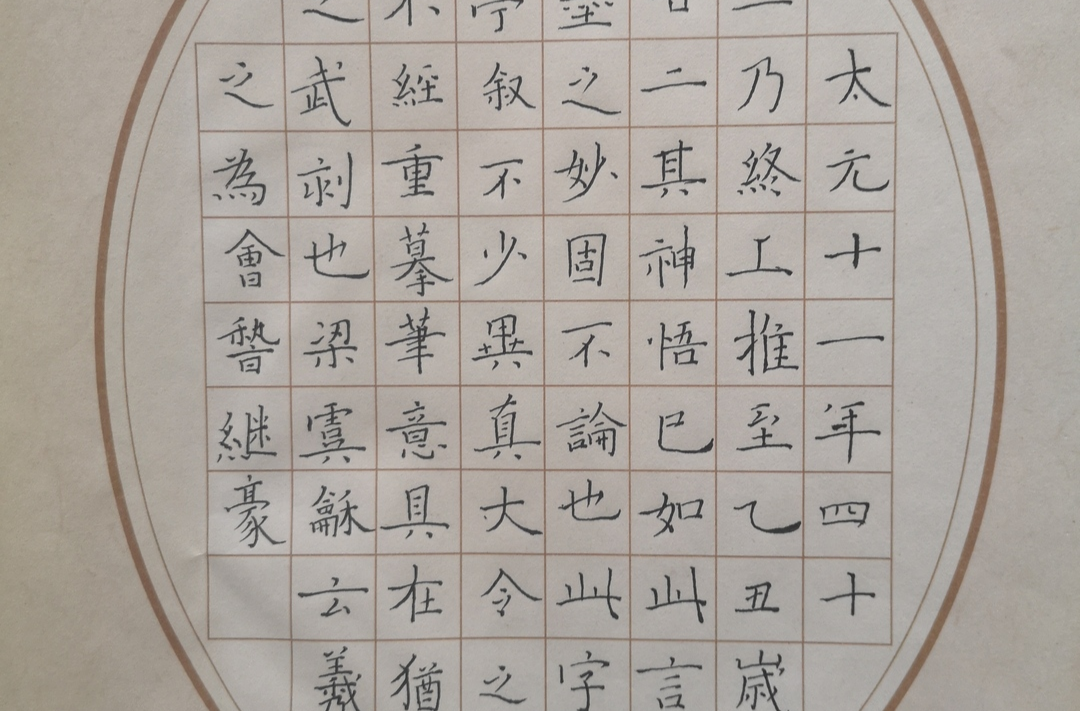 太元十一年四十
乃終工推至乙丑歲
二其神悟巳如此言
墨之妙固不論也此字
亭叙不少異真大令之
不經重摹筆意具在猶
之武剥也梁虞龢云羲
之為會稽継豪